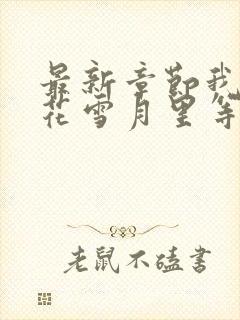 最新章節我
花雪月里等
老鼠不磕書